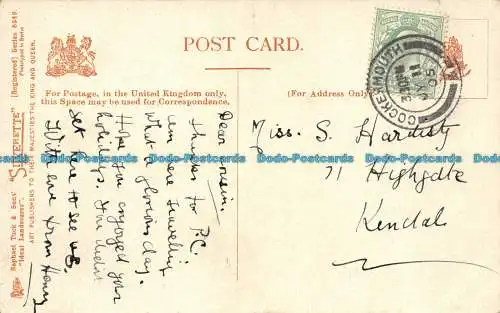 POST CARD.
For Postage, in the United Kingdom only,
this Space may be used for Correspondence.
(For Address Only)
Raphael Tuck & Sons' "SILVERETTE" (Registered) Series 6589.
"Ideal Landscapes".
ART PUBLISHERS TO THEIR MAJESTIES THE KING AND QUEEN.
COCKERMOUTH
Dear cousin.
thanks for P.C.
am here travelling
What a glorious day.
Hope you enjoyed your
holidays. You didn't
get here to see us.
With love from Henry
Miss. S. Hardisty
71 Highgate
Kendal
Dodo-Postcards Dodo-Postcards Dodo-Postcards Dodo-Postcards